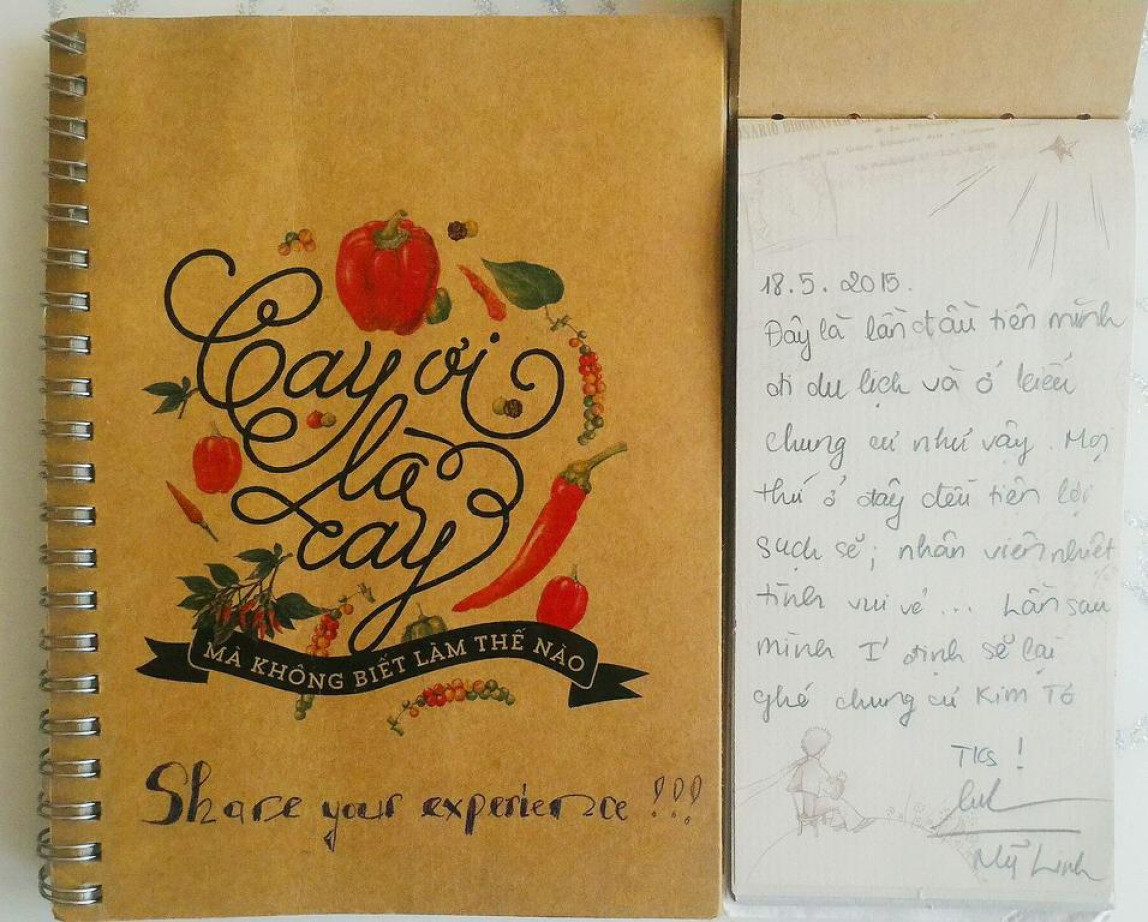 Cay ơi
là
cay
MÀ KHÔNG BIẾT LÀM THẾ NÀO
Share your experience !!!
18.5.2015.
Đây là lần đầu tiên mình
đi du lịch và ở kiểu
chung cư như vậy. Mọi
thứ ở đây đều tiện lợi
sạch sẽ; nhân viên nhiệt
tình vui vẻ... Lần sau
mình I' định sẽ lại
ghé chung cư Kim Tô
TKs!
Mỹ Linh